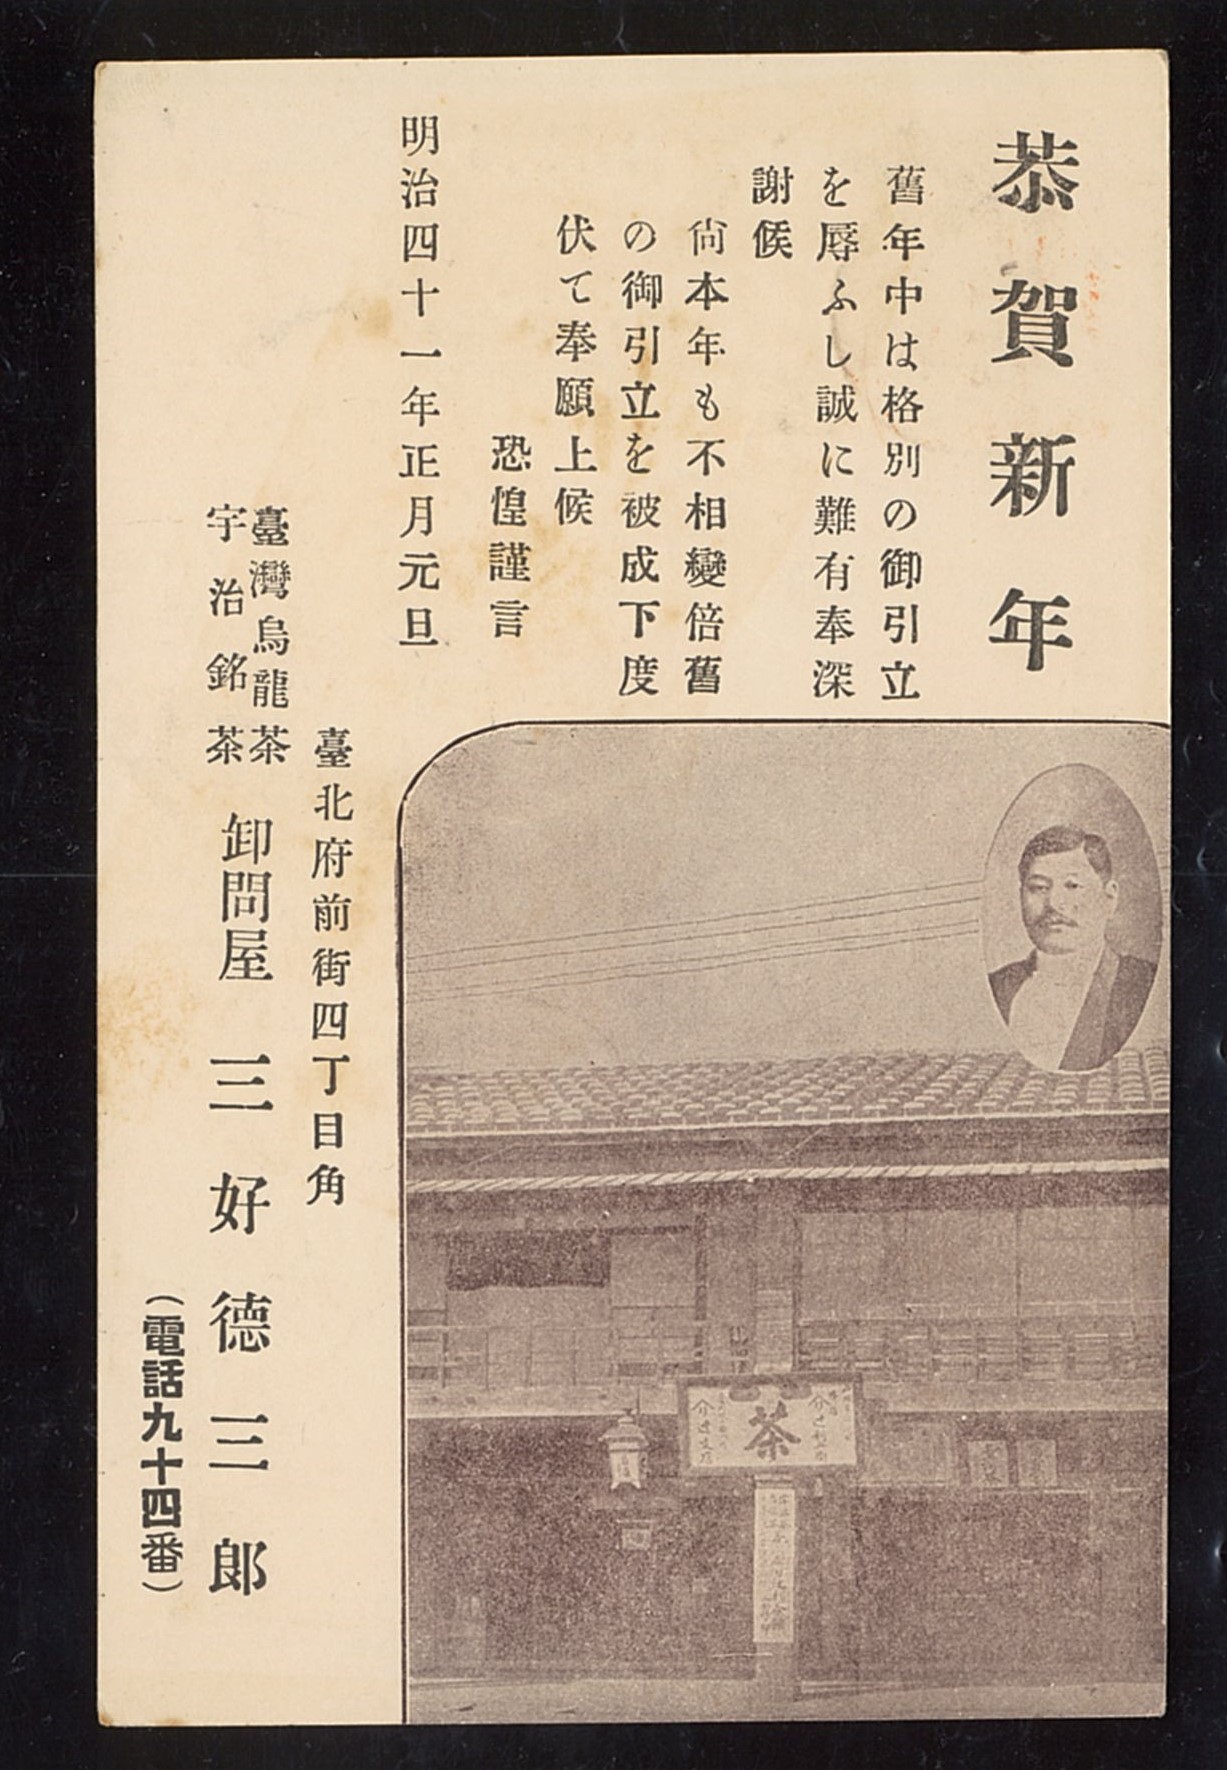 恭賀新年
舊年中は格別の御引立
を辱ふし誠に難有奉深
謝候
尙本年も不相變倍舊
の御引立を被成下度
伏て奉願上候
恐惶謹言
明治四十一年正月元旦
臺北府前街四丁目角
臺灣烏龍茶
宇治銘茶
卸問屋 三好德三郎
(電話九十四番)
茶